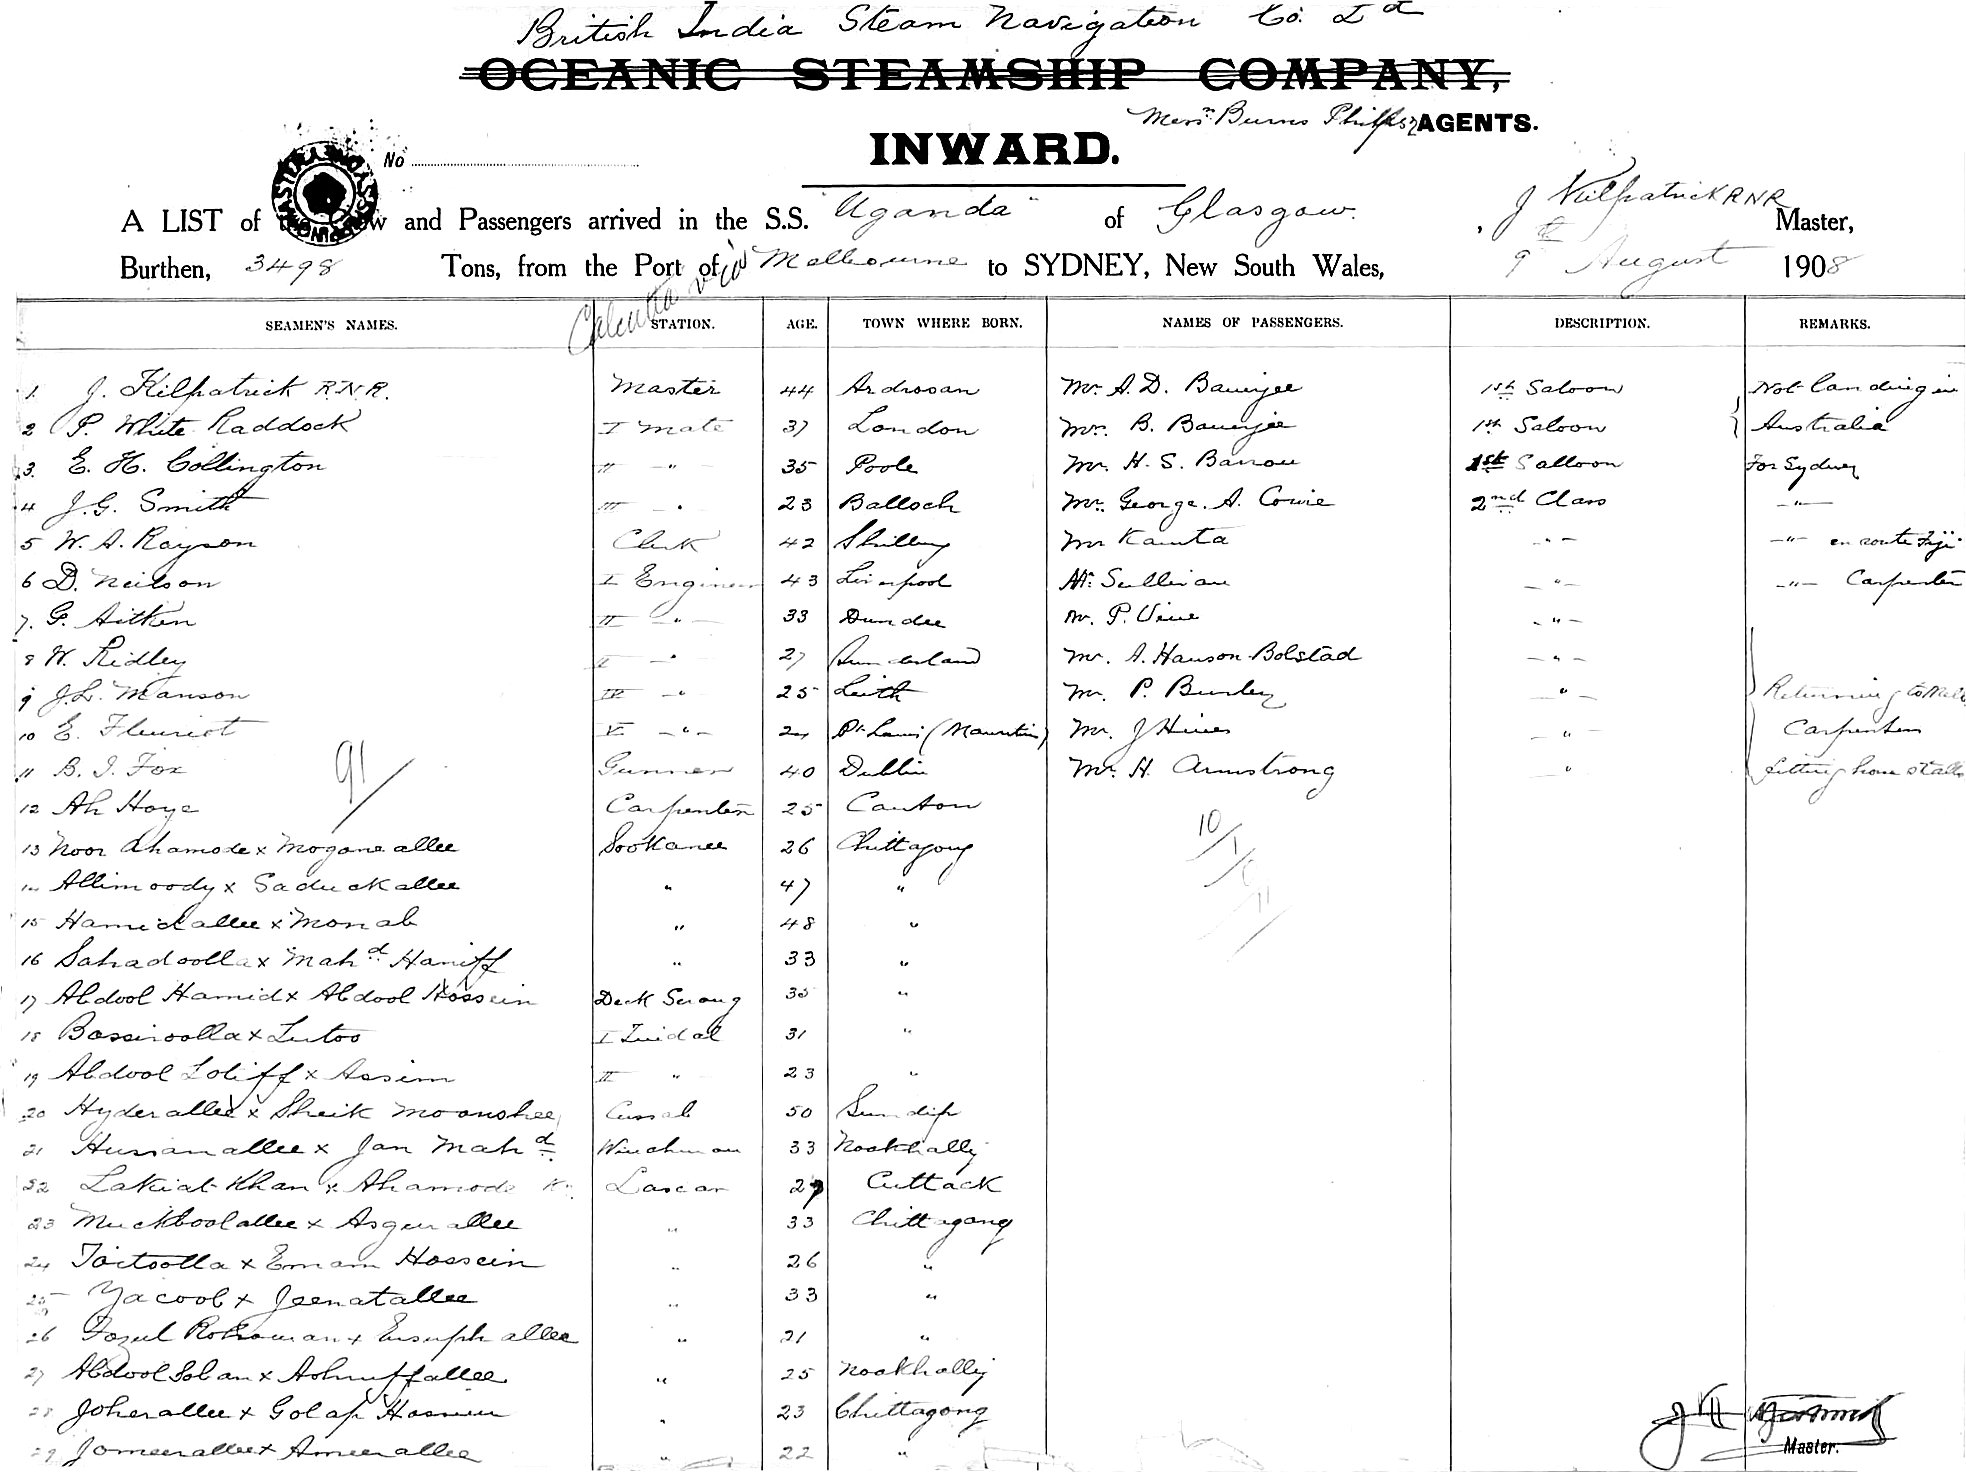 British India Steam Navigation Co. Ltd
OCEANIC STEAMSHIP COMPANY,
Messrs Burns Philp & Co AGENTS.
No
INWARD.
A LIST of the Crew and Passengers arrived in the S.S. "Uganda" of Glasgow. J Kilpatrick RNR Master,
Burthen, 3498 Tons, from the Port of Calcutta via Melbourne to SYDNEY, New South Wales, 9th August 1908
SEAMEN'S NAMES. STATION. AGE. TOWN WHERE BORN. NAMES OF PASSENGERS. DESCRIPTION. REMARKS.
1 J. Kilpatrick R.N.R. Master 44 Ardrosan Mr. A. D. Banerjee 1st Saloon Not landing in
2 P. White Raddock I Mate 37 London Mr. B. Banerjee 1st Saloon Australia
3. E. H. Collington II " 35 Poole Mr. H. S. Barrow 1st Salloon For Sydney
4 J. G. Smith III " 23 Balloch Mr. George. A. Cowie 2nd Class "
5 W. A. Rayson Clerk 42 Mr Kanta " " en route Fiji
6 D. Neilson I Engineer 43 Liverpool Mr. Sullivan " " Carpenter
7. G. Aitken II " 33 Dundee Mr. P. Vine "
8 W. Ridley " 27 Sunderland Mr. A. Hanson-Bolstad "
9 J. L. Manson IV " 25 Leith Mr. P. Burley " Returning to Melb
10 E. Fleuriot V " Pt Louis (Mauritius) Mr. J Hines " Carpenters
11 B. J. Fox Gunner 40 Dublin Mr. H. Armstrong " fitting horse stalls
91/
12 Ah Hoye Carpenter 25 Canton
10/
13 Noor Ahamode x Mogane allee Sookanee 26 Chittagong
14 Allimoody x Saduckallee " 47 "
15 Hamidallee x Monab " 48 "
16 Sahadoolla x Mahd Haniff " 33 "
17 Abdool Hamid x Abdool Hossein Deck Serang 35 "
18 Bassiroolla x Lutoo I Tindal 31 "
19 Abdool Lotiff x Assim II " 23 "
20 Hyderallee x Sheik Moonshee Cassab 50 Sundip
21 Hussanallee x Jan Mahd Winchman 33 Noakhally
22 Lakiat Khan x Ahamode K Lascar 29 Cuttack
23 Muckboolallee x Asgurallee " 33 Chittagong
24 Toitoolla x Emam Hossein " 26 "
25 Yacoob x Jeenatallee " 33 "
26 Fozul Rohoman x Eusuph allee " 21 "
27 Abdool Soban x Ashruffallee " 25 Noakhally
28 Joherallee x Golap Hossein " 23 Chittagong
29 Jomeerallee x Ameerallee " 22 "
J Kilpatrick
Master.